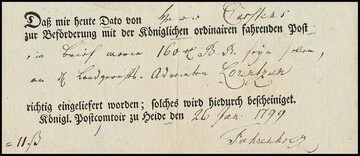 Daß mir heute Dato von Herr Carstens
zur Beförderung mit der Königlichen ordinairen fahrenden Post
ein Brief worin 160 B B seyn sollen,
an Landgerichts-Advocaten Lorentzen
richtig eingeliefert worden; solches wird hiedurch bescheiniget.
Königl. Postcomtoir zu Heide den 26 Jan 1799
11 ß Fahrenholz